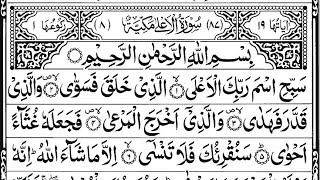 اٰیَاتُهَا ١٩ ﴿٨٧﴾ سُوْرَةُ الْاَعْلٰى مَكِّيَّةٌ ﴿٨﴾ رُكُوْعُهَا ١
بِسْمِ اللّٰهِ الرَّحْمٰنِ الرَّحِيْمِ
سَبِّحِ اسْمَ رَبِّكَ الْاَعْلَى ۝١ الَّذِيْ خَلَقَ فَسَوّٰى ۝٢ وَالَّذِيْ
قَدَّرَ فَهَدٰى ۝٣ وَالَّذِيْٓ اَخْرَجَ الْمَرْعٰى ۝٤ فَجَعَلَهٗ غُثَآءً
اَحْوٰى ۝٥ سَنُقْرِئُكَ فَلَا تَنْسٰٓى ۝٦ اِلَّا مَا شَآءَ اللّٰهُ ؕ اِنَّهٗ